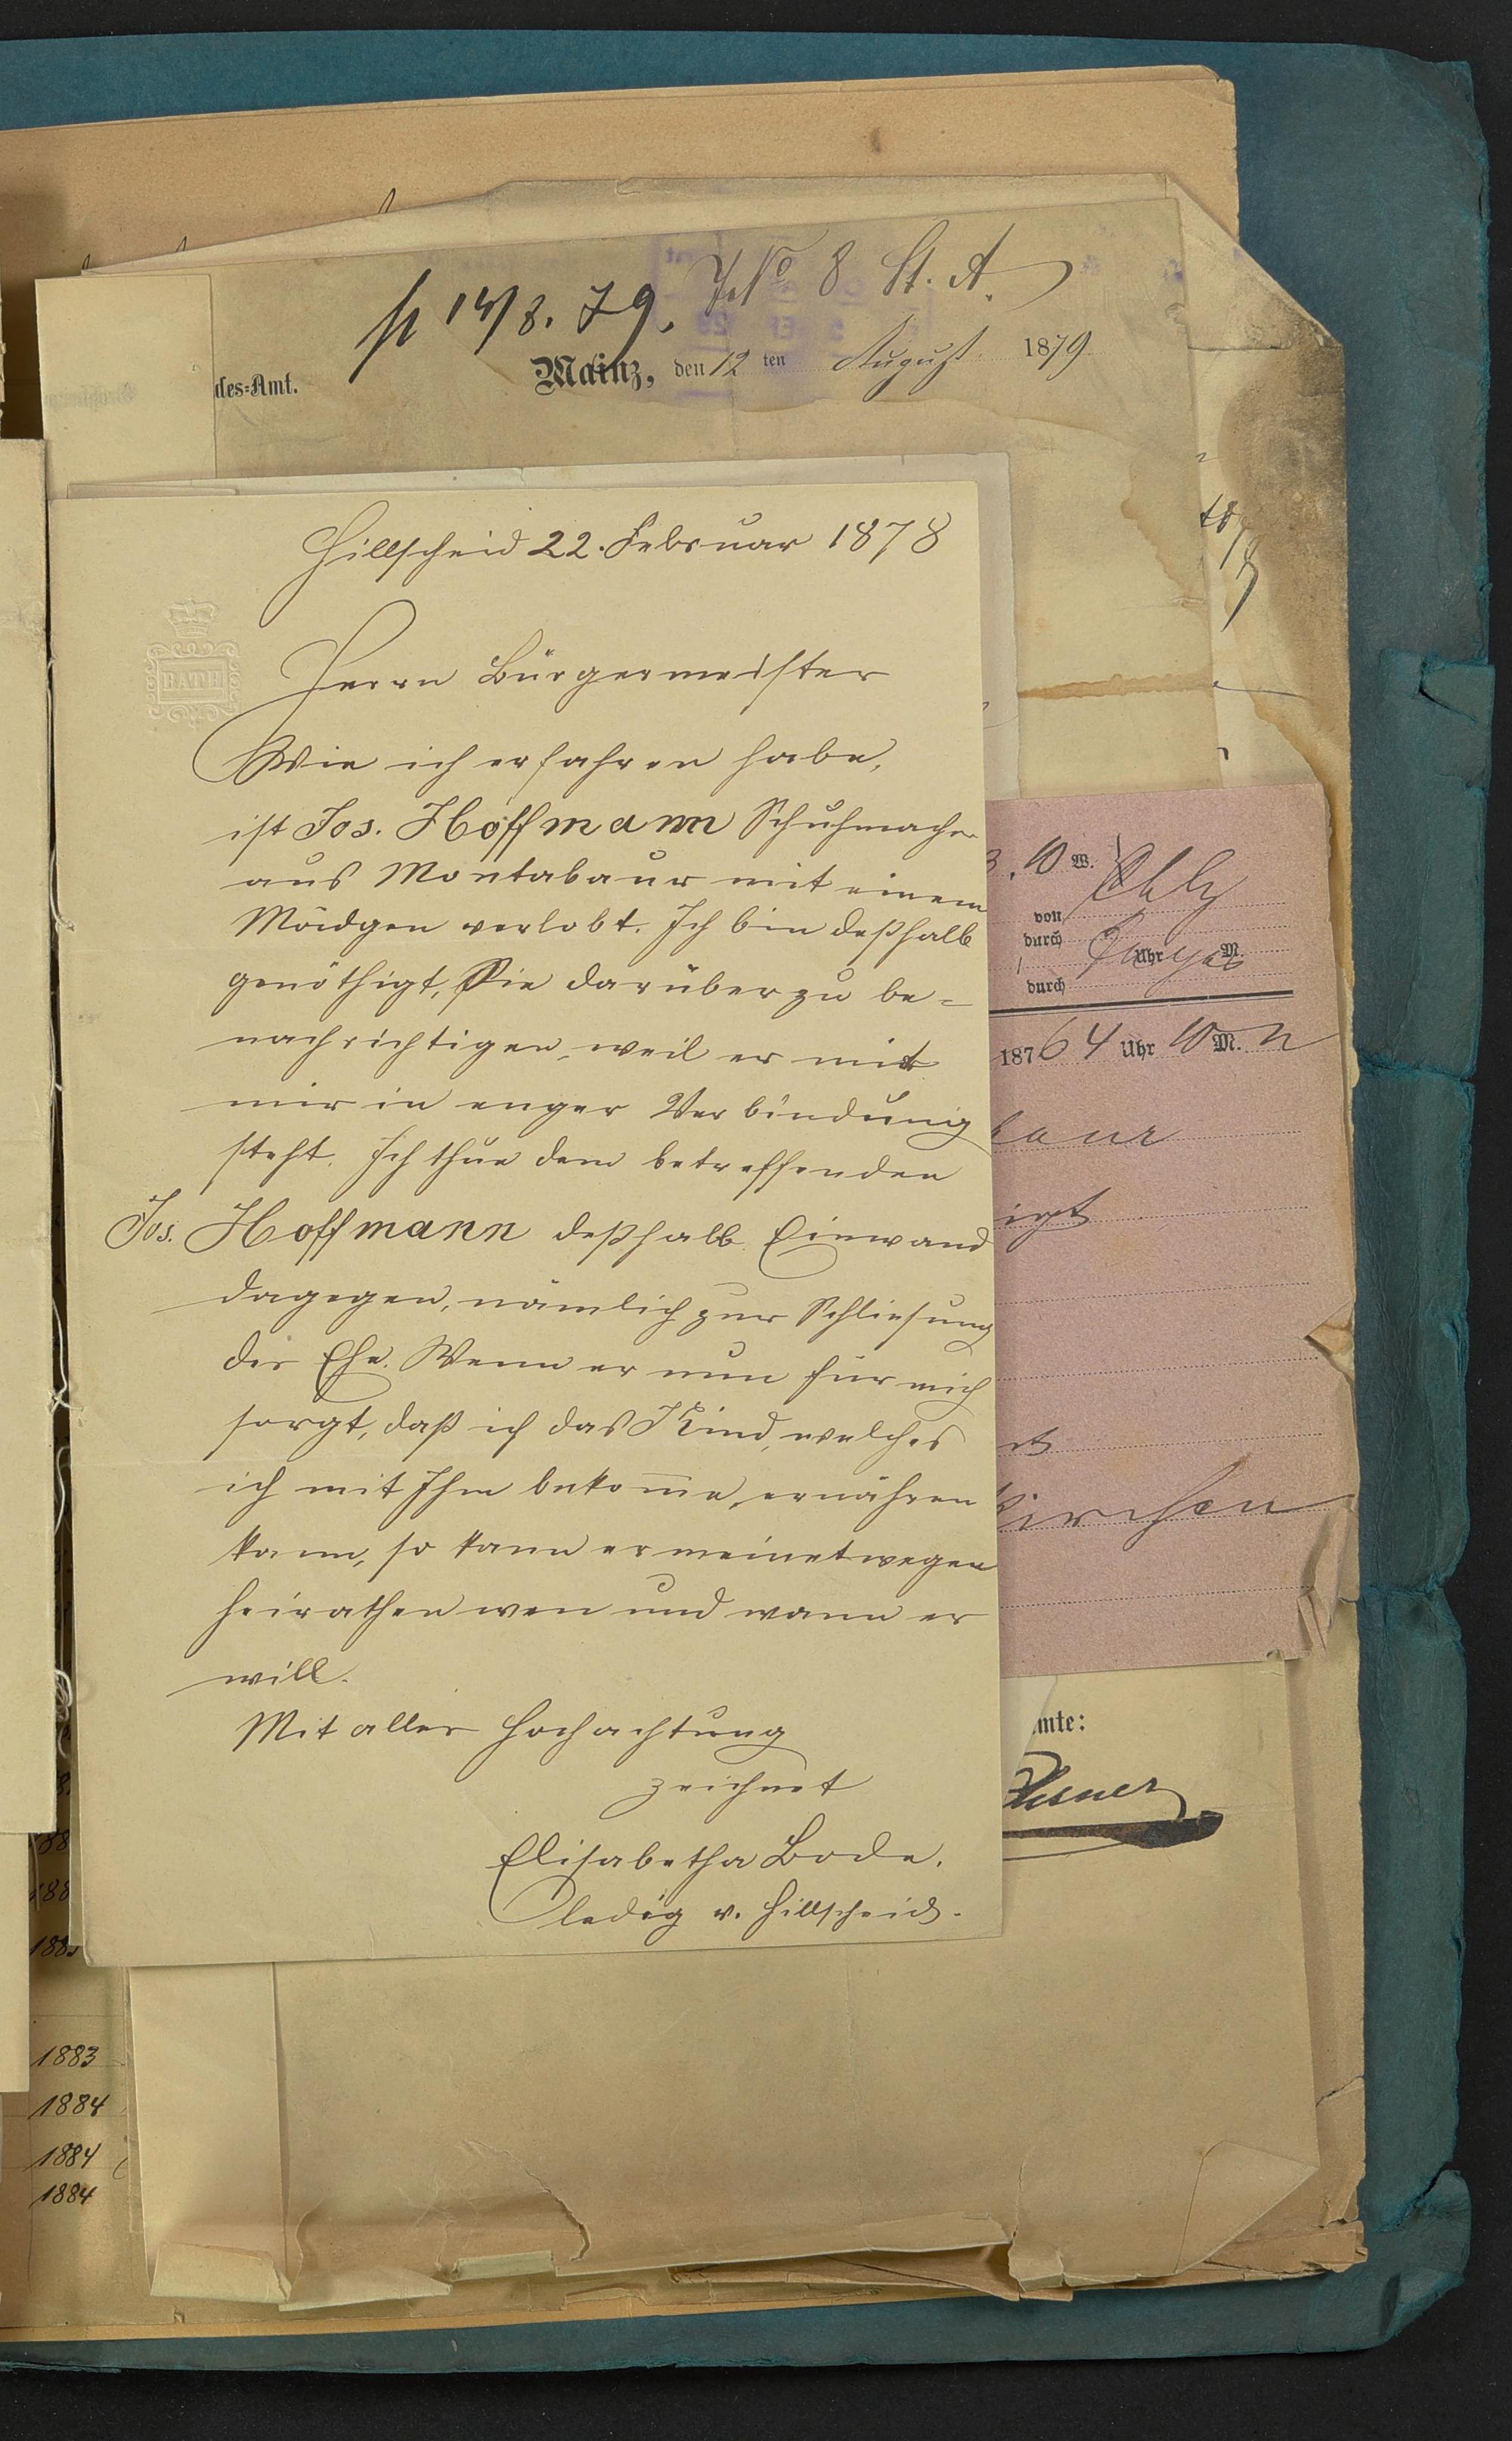 des-Amt.
14/8. 79. No 8 St. A.
Mainz, den 12 ten August 1879
Hillscheid 22. Februar 1878
BATH
Herrn Bürgermeister
Wie ich erfahren habe,
ist Jos. Hoffmann Schuhmacher
aus Montabaur mit einem
Mädgen verlobt. Ich bin deßhalb
genöthigt, Sie darüber zu be=
nachrichtigen, weil er mit
mir in enger Verbindung
steht. Ich thue dem betreffenden
Jos. Hoffmann deßhalb Einwand
dagegen, nämlich zur Schliesung
der Ehe. Wenn er nun für mich
sorgt, daß ich das Kind, welches
ich mit Ihm bekomme, ernähren
kann, so kann er meinetwegen
heirathen wen und wann er
will.
Mit aller Hochachtung
zeichnet
Elisabetha Bode.
ledig v. Hillscheid.
10 W.
von
durch
Uhr M.
durch
1876 4 Uhr 10 M. N
baur
igt
kirchen
mte:
1883
1884
1884
1884